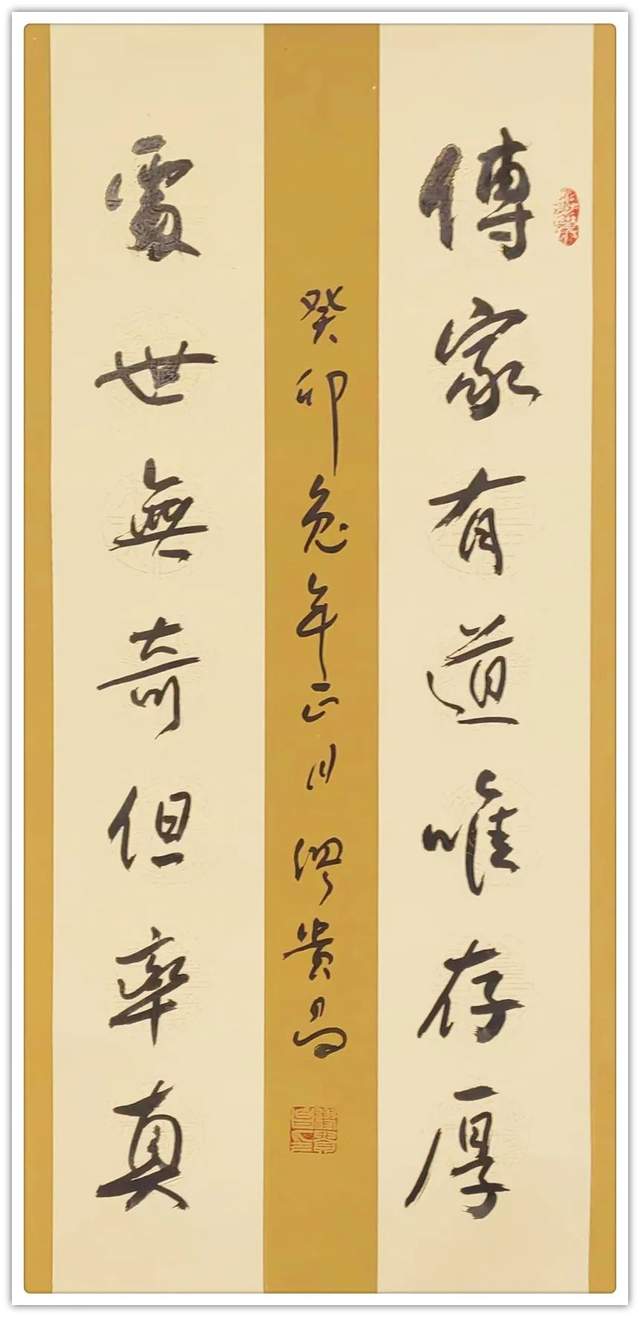 傳家有道唯存厚
處世無奇但率真
癸卯兔年正月繆貴昌